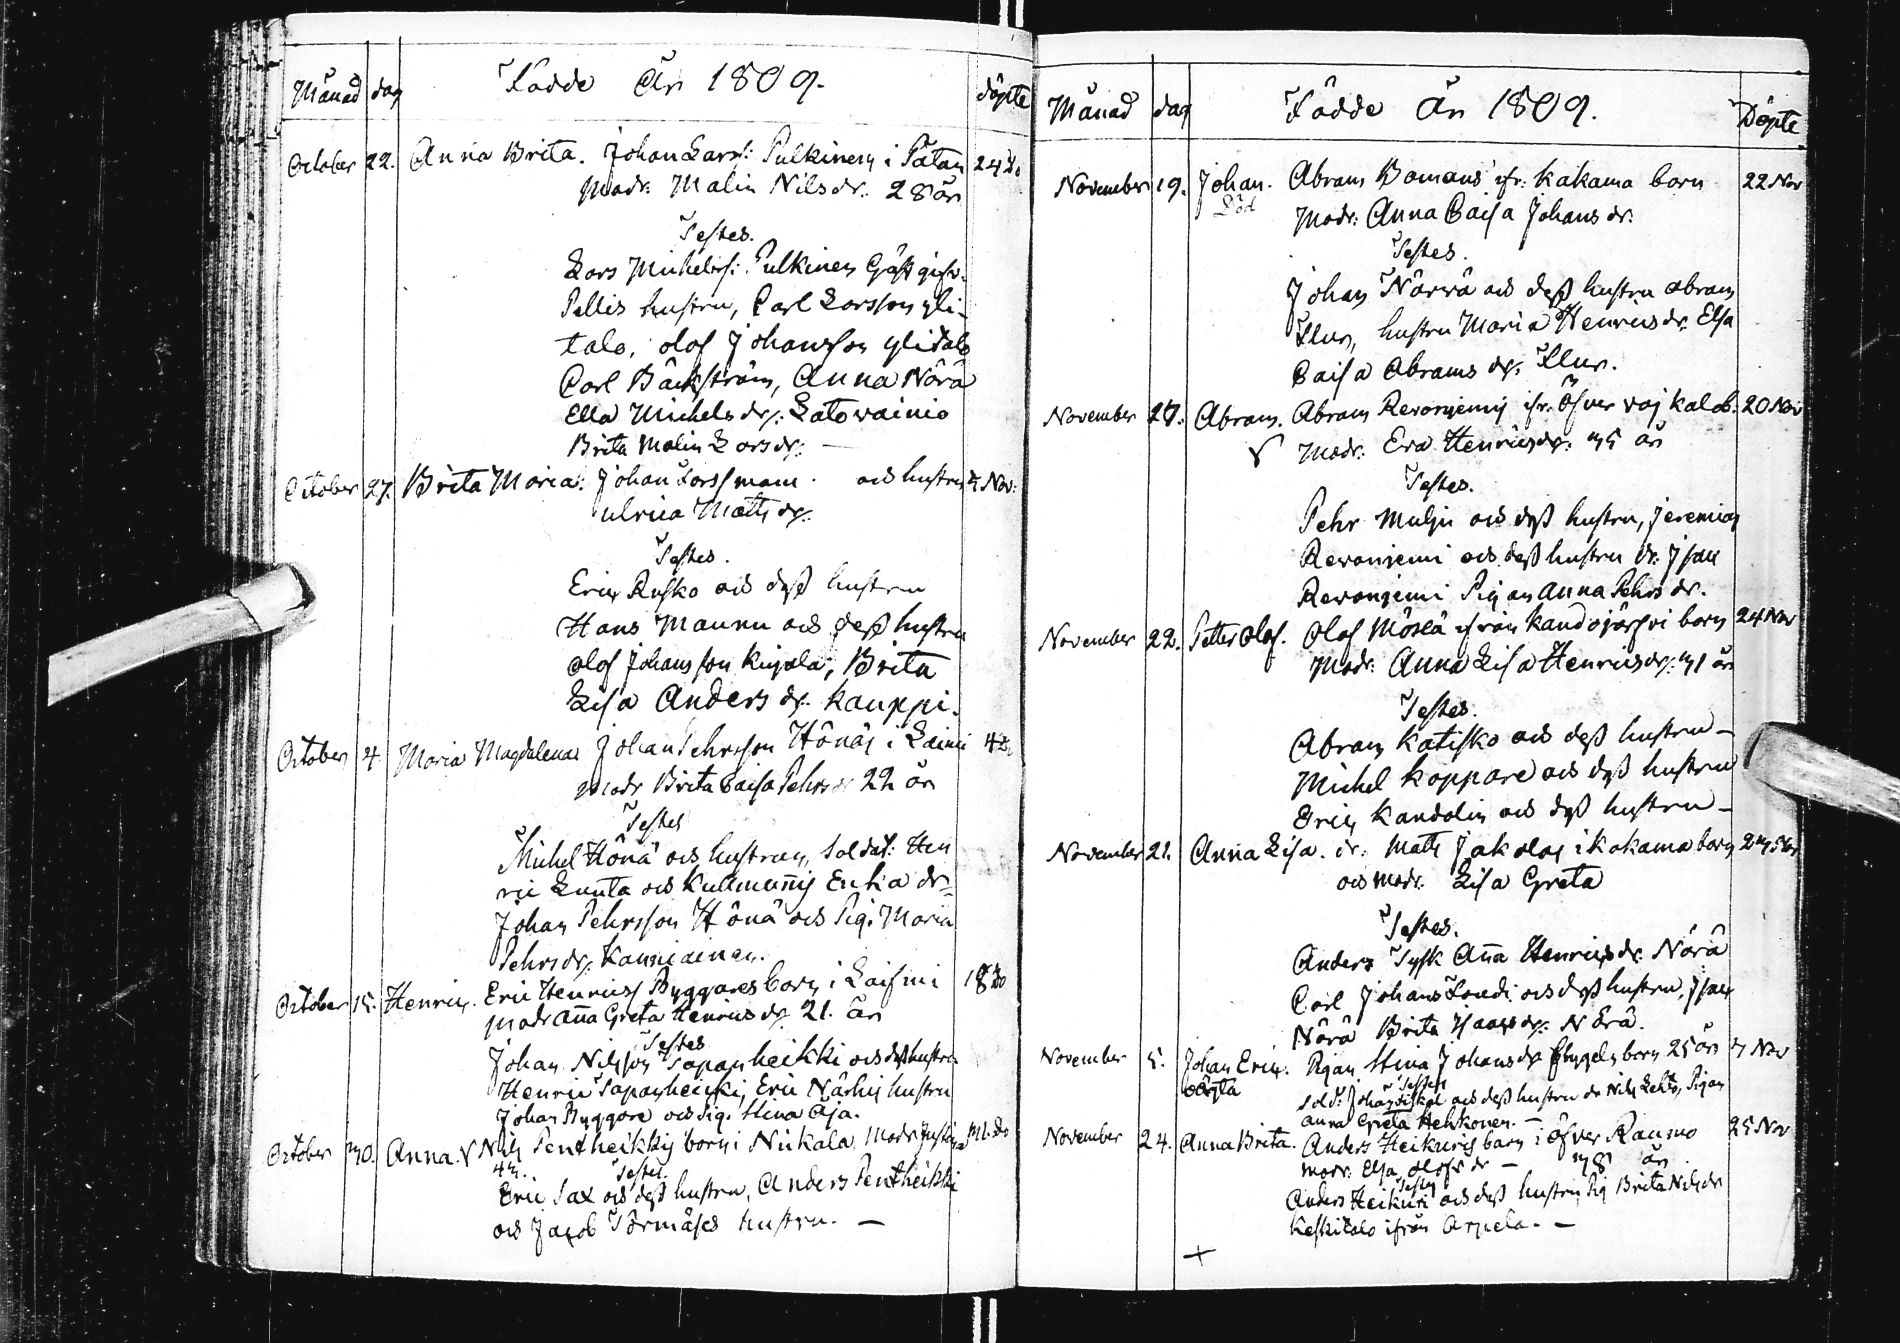 Månad dag Födde År 1809. döpte
October 22. Anna Brita. Johan Larss: Pulkinen i Pätan 24 do
Modr. Malin Nilsdr. 28 år
Testes.
Lars Michelss: Pulkinen Gästgifv.
Pellis hustru, Carl Larsson yli-
talo, Olof Johansson ylitalo
Carl Bäckström, Anna Nörä
Ella Michelsdr: Latovainio
Brita Malin Larsdr: —
October 27. Brita Maria. Johan Larssmann. och hustru Nov:
Ulrica Matts dr.
Testes.
Eric Rusko och dess hustru
Hans Maunu och dess hustru
Olof Johansson Kujala, Brita
Lisa Anders dr. Kauppi.
October 4. Maria Magdalena Johan Pehrsson Hönäs i
modr Brita Caisa Pehrsdr 22 år
Testes
Michel Hönä och hustrun, Soldat: Hen
ric Lunta och dr
Johan Pehrsson Hönä och Pig. Maria
Pehrsdr: Kanniainen.
October 15. Henric. Eric Henricss Byggares barn i 18 do
modr Aña Greta Henricsdr 21. år
Testes
Johan Nilsson Tapanheikki och dess hustru
Henric Tapanheikki, Eric Närhis hustru
Johan Byggare och Pig. Stina
October 30. Anna. V Nils Pentheikkis barn i Niskala, Modr.
Testes.
Eric Sax och dess hustru, Anders Pentheikki
och Jacob Törmäses hustru. —
Månad dag Födde År 1809. Döpte
November 19. Johan. Abram Bomans ifr: Kakama barn 22 Nov
Död Modr: Anna Caisa Johansdr.
Testes.
Johan Närrä och dess hustru Abram
hustru Maria Henricsdr. Elsa
Caisa Abrams dr.
November 27. Abram. Abram Revonjemis ifr. Öfver vojakala b. 20 Nov
V Modr: Eva Henricsdr: 35 år
Testes.
Pehr Mulju och dess hustru, Jeremias
Revonjemi och dess hustru dr. Isac
Revonjemi Pigan Anna Pehrs dr.
November 22. Petter Olof. Olof Möskä ifrån Kandojärfvi barn 24 Nov
Modr: Anna Lisa Henricsdr: 31 år
Testes.
Abram Katisko och dess hustru —
Michel Koppare och dess hustru
Eric Kandolin och dess hustru —
November 21. Anna Lisa. Matts Jakolas i Kakama barn 23 Nov
och Modr. Lisa Greta
Testes.
Anders Tysk Aña Henricsdr Nörä
Carl Johans och dess hustru, Isac
Nörä Brita Isaacsdr: Nörä.
November 5. Johan Eric. Pigan Stina Johansdr barn 25 år 7 Nov
oägta
Testes
Sold: och dess hustru dr Nils Pigan
Anna Greta Hehkonen. —
November 24. Anna Brita. Anders Heikuris barn i Öfver Raumo 25 Nov
modr. Elsa Olofs dr — 38 år
Testes
Anders Heikuri och dess hustru, Pig Brita Nilsdr
Keskitalo ifrån Arpela. —
+